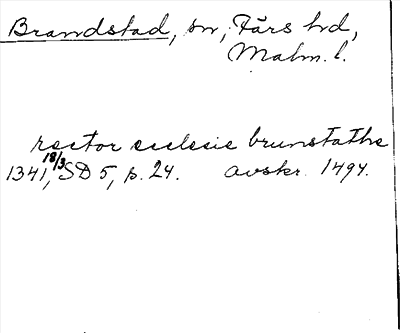 Brandstad, sn, Färs hd,
Malm. l.
rector ecclesie brunstathe
1341 18/3, SD 5, p. 24. avskr. 1494.